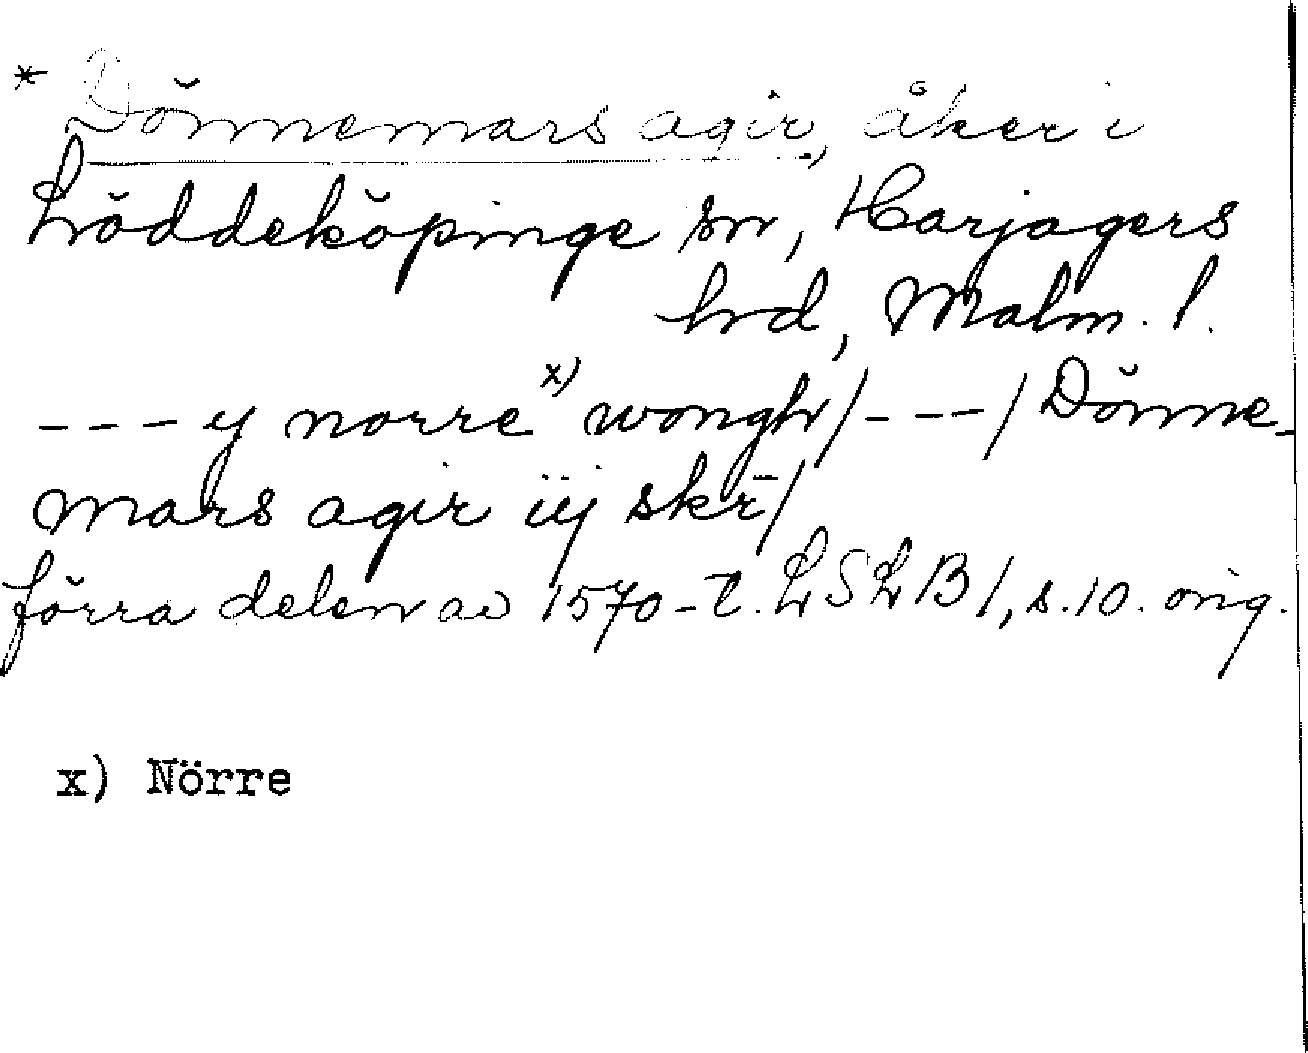 * Dönnemars agir, åker i
Löddeköpinge sn, Harjagers
hrd, Malm. l.
---y norre x) wongh/---/Dönne-
mars agir iij skr̄/
förra delen av 1570-t. LSLB1, s.10. orig.
x) Nörre